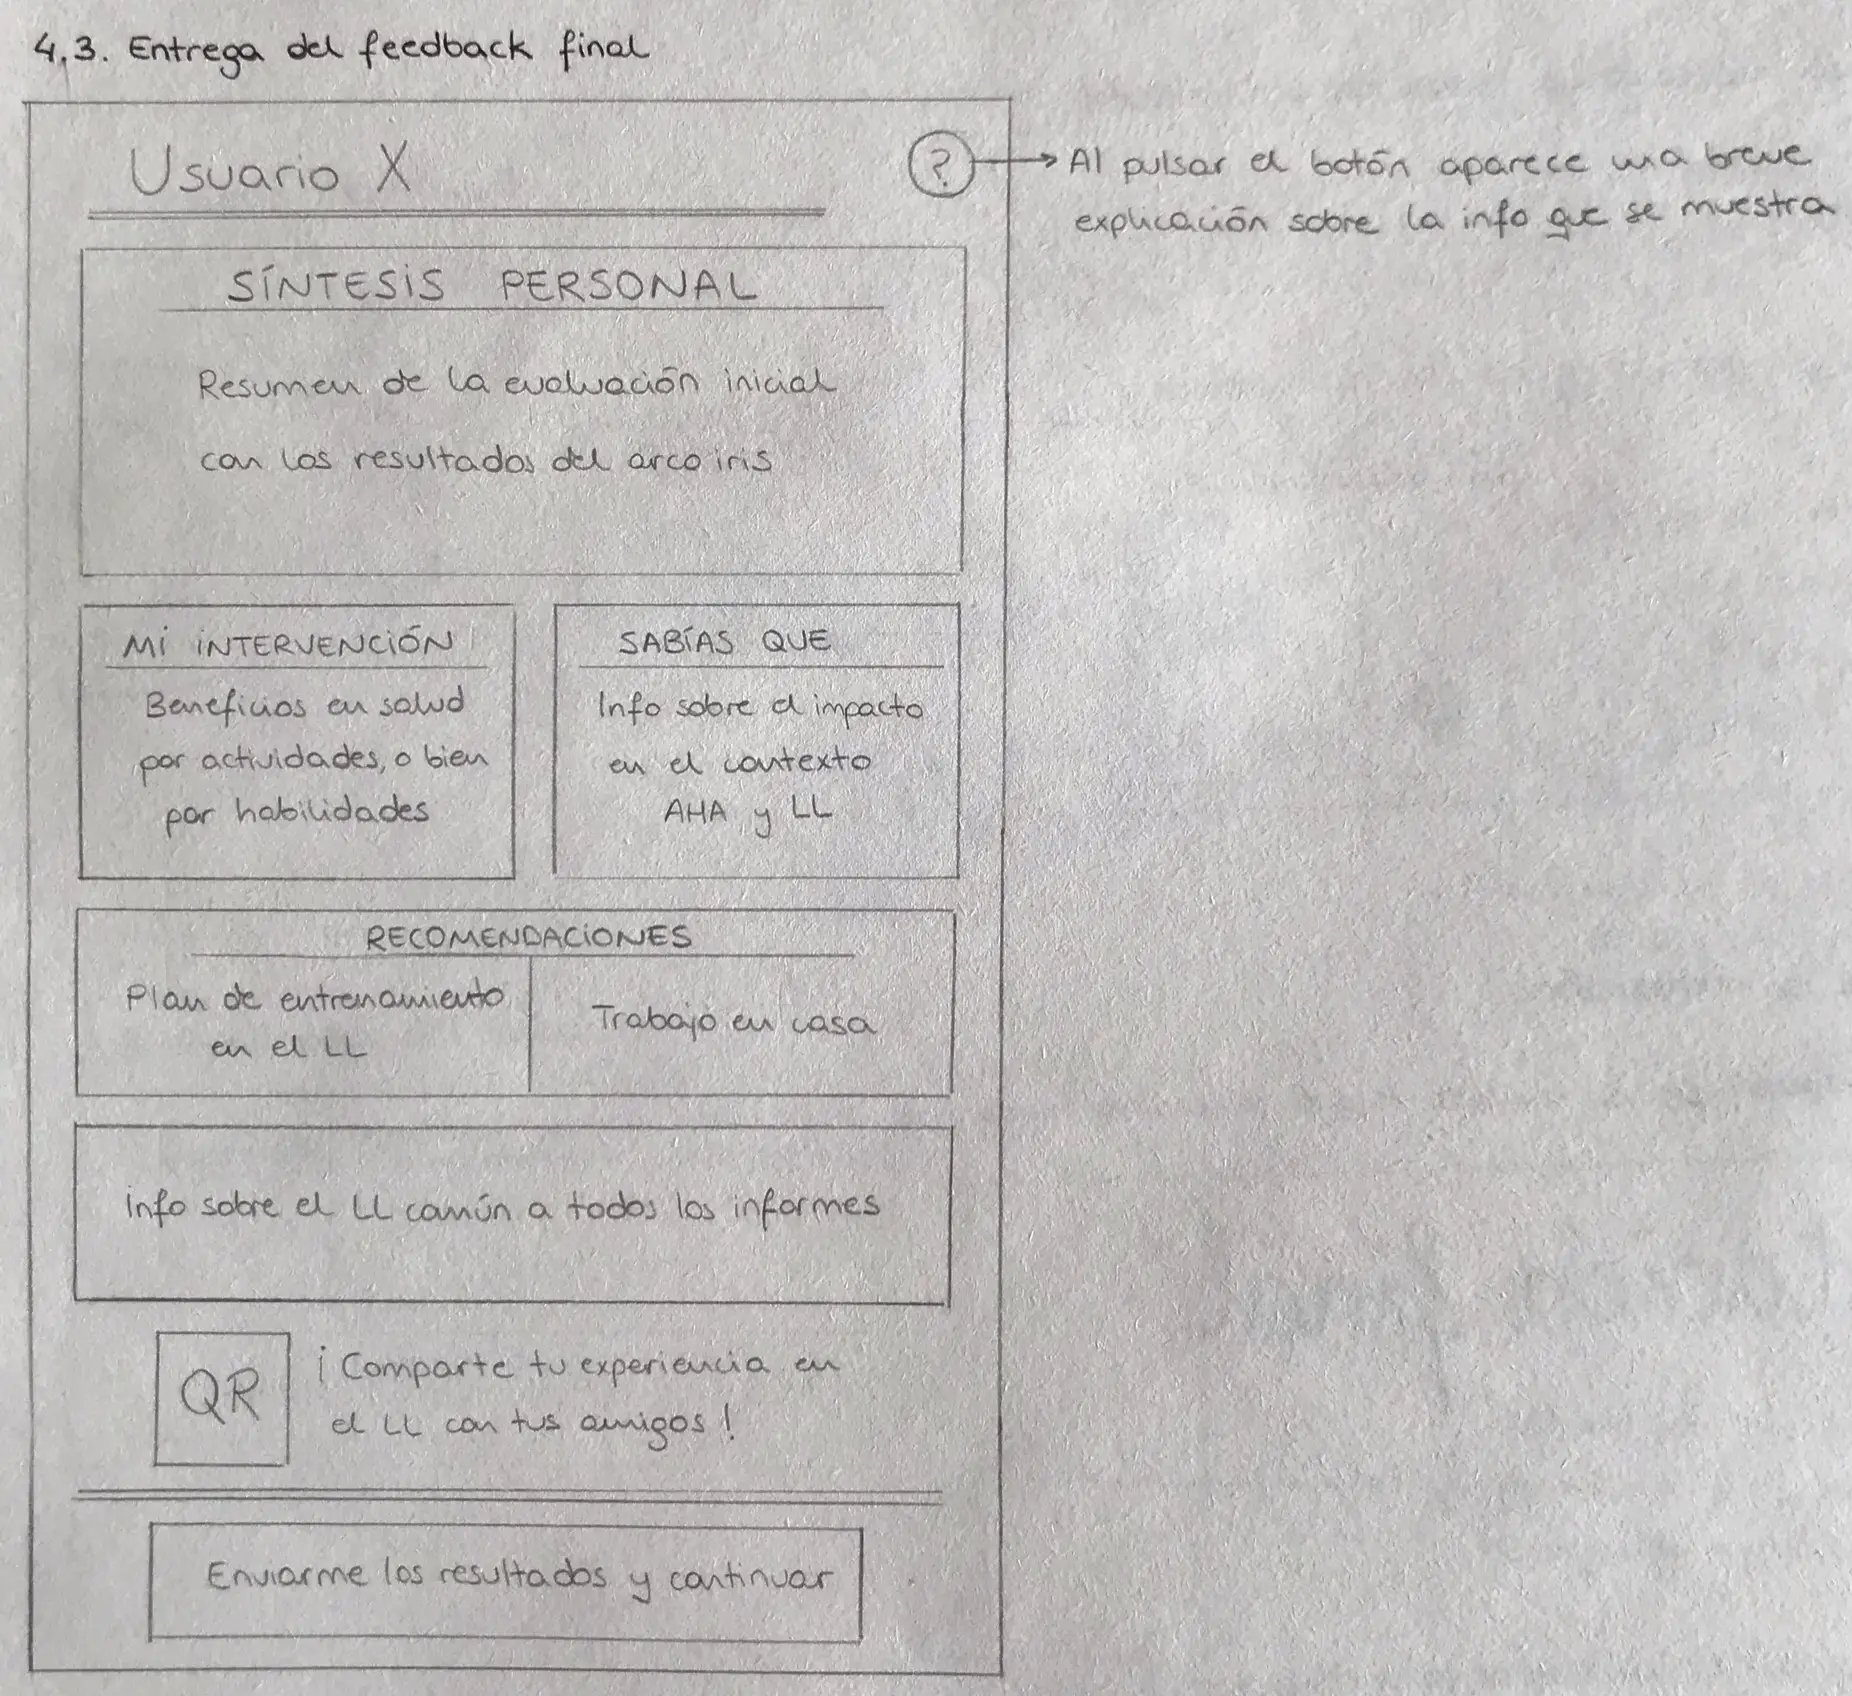 4.3. Entrega del feedback final
Usuario X
?
Al pulsar el botón aparece una breve
explicación sobre la info que se muestra
SÍNTESIS PERSONAL
Resumen de la evaluación inicial
con los resultados del arco iris
MI INTERVENCIÓN
Beneficios en salud
por actividades, o bien
por habilidades
SABÍAS QUE
Info sobre el impacto
en el contexto
AHA y LL
RECOMENDACIONES
Plan de entrenamiento
en el LL
Trabajo en casa
Info sobre el LL común a todos los informes
QR
¡Comparte tu experiencia en
el LL con tus amigos!
Enviarme los resultados y continuar